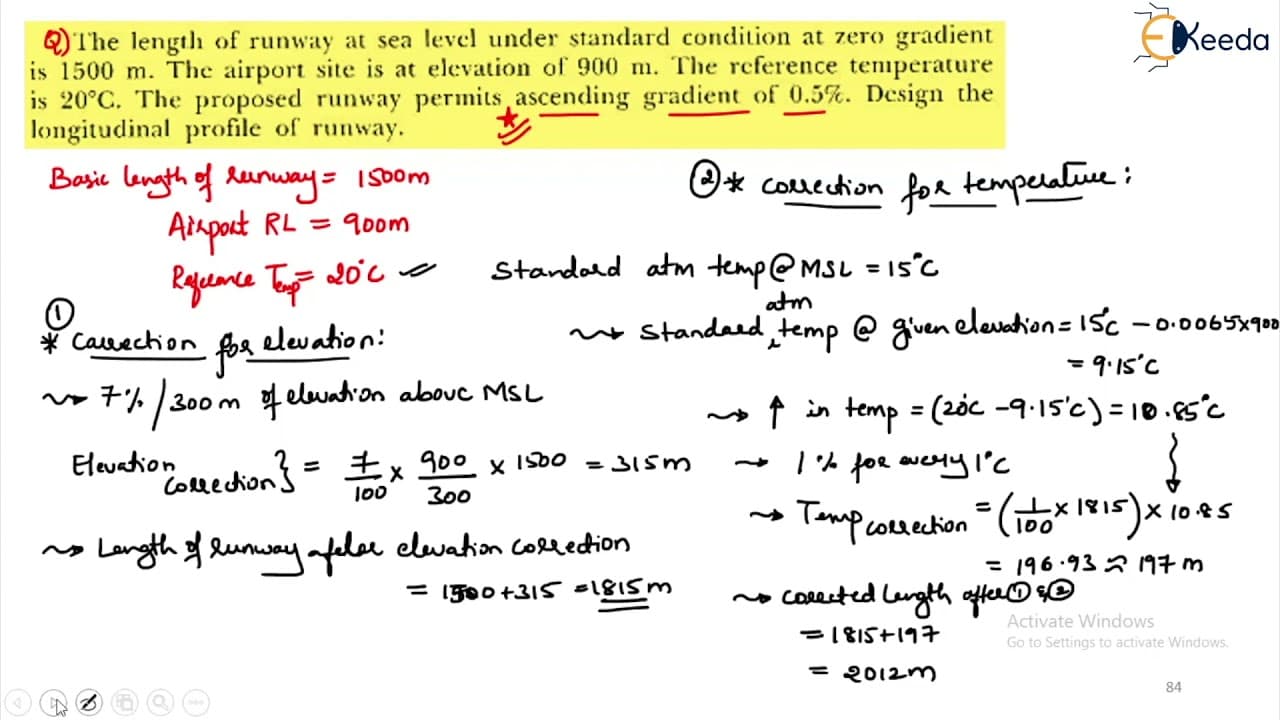 Q) The length of runway at sea level under standard condition at zero gradient
is 1500 m. The airport site is at elevation of 900 m. The reference temperature
is 20°C. The proposed runway permits ascending gradient of 0.5%. Design the
longitudinal profile of runway.
EKeeda
Basic length of runway = 1500m
Airport RL = 900m
Refuence Temp = 20°C
① * Correction for elevation:
⇝ 7% / 300m of elevation above MSL
Elevation correction } = 7/100 × 900/300 × 1500 = 315m
⇝ Length of runway after elevation correction
= 1500+315 = 1815m
② * correction for temperature:
Standard atm temp @ MSL = 15°C
⇝ Standard atm temp @ given elevation = 15°C − 0.0065×900
= 9.15°C
⇝ ↑ in temp = (20°C − 9.15°C) = 10.85°C
→ 1% for every 1°C
⇝ Temp correction = (1/100 × 1815) × 10.85
= 196.93 ≈ 197m
⇝ corrected length after ① & ②
= 1815+197
= 2012m
Activate Windows
Go to Settings to activate Windows.
84